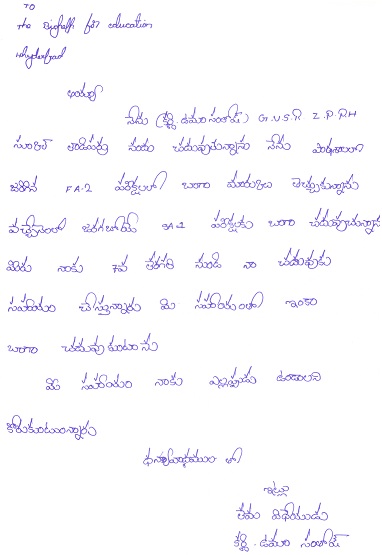 TO
the Bighelp for education
Hyderabad
అయ్యా
నేను (కర్రి. ఉమా సంతోష్) G.V.S.R Z.P.P.H
స్కూల్ నందు చదువుచున్నాను నేను పాఠశాలలో
జరిగిన FA-2 పరీక్షలలో బాగా మార్కులు తెచ్చుకున్నాను
వచ్చేనెలలో జరగబోయే SA-1 పరీక్షలకు బాగా చదువుచున్నాను
మీరు నాకు 7వ తరగతి నుండి నా చదువుకు
సహాయం చేస్తున్నారు మీ సహాయంతో ఇంకా
బాగా చదువుకుంటాను
మీ సహాయం నాకు ఎల్లప్పుడు ఉండాలని
కోరుకుంటున్నాను
ధన్యవాదములు తో
ఇట్లు
తమ విధేయుడు
కర్రి. ఉమా సంతోష్